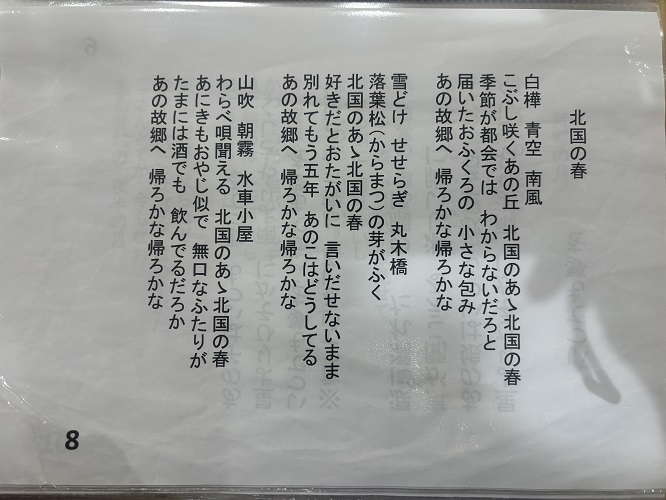 北国の春
白樺 青空 南風
こぶし咲くあの丘 北国のあゝ北国の春
季節が都会では わからないだろと
届いたおふくろの 小さな包み
あの故郷へ 帰ろかな帰ろかな
雪どけ せせらぎ 丸木橋
落葉松(からまつ)の芽がふく
北国のあゝ北国の春
好きだとおたがいに 言いだせないまま ※
別れてもう五年 あのこはどうしてる
あの故郷へ 帰ろかな帰ろかな
山吹 朝霧 水車小屋
わらべ唄聞える 北国のあゝ北国の春
あにきもおやじ似で 無口なふたりが
たまには酒でも 飲んでるだろか
あの故郷へ 帰ろかな帰ろかな
8